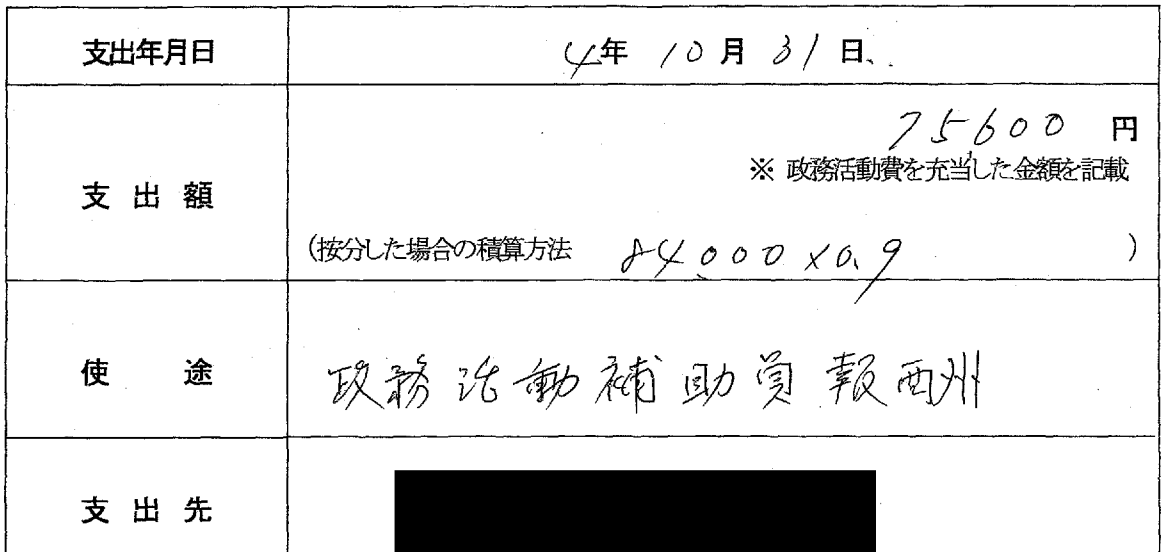 支出年月日 4年 10月 31日
75600 円
※ 政務活動費を充当した金額を記載
支出額
(按分した場合の積算方法 84,000×0.9 )
使途 政務活動補助員報酬
支出先